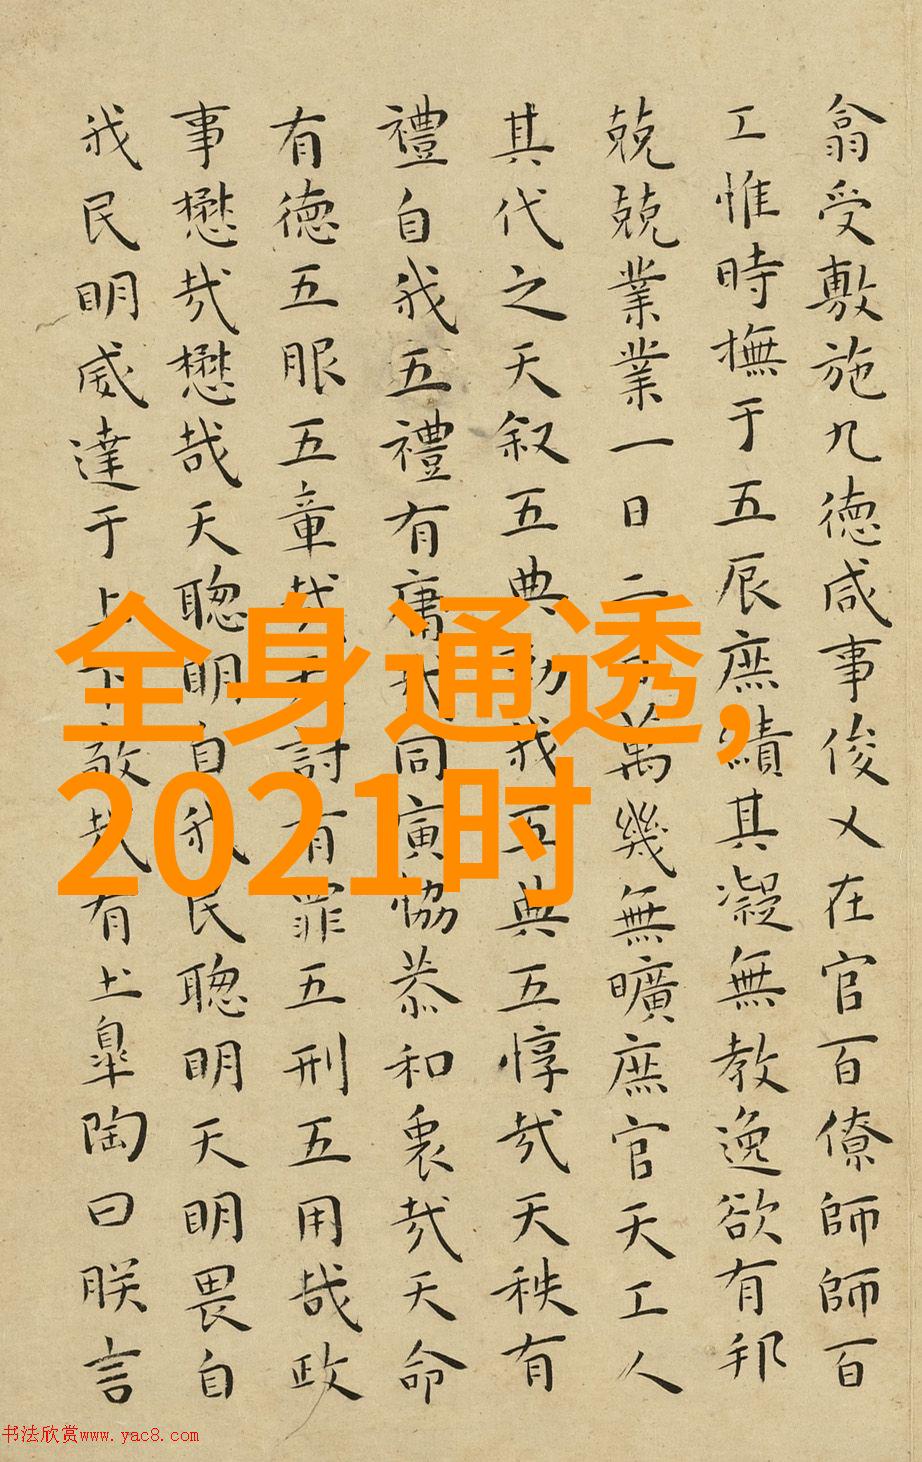 翕受敷施九德咸事俊乂在官百僚師師百
工惟時撫于五辰庶績其凝無教逸欲有邦
兢兢業業一日二萬幾無曠庶官天工人
其代之天叙五典勑我五典五惇哉天秩有
禮自我五禮有庸哉同寅恊恭和衷哉天命
有德五服五章哉天討有罪五刑五用哉政
事懋哉懋哉天聰明自我民聰明天明畏自
我民明威達于上下敬哉有土皋陶曰朕言
全身通透,
2021时
书法欣赏www.yac8.com